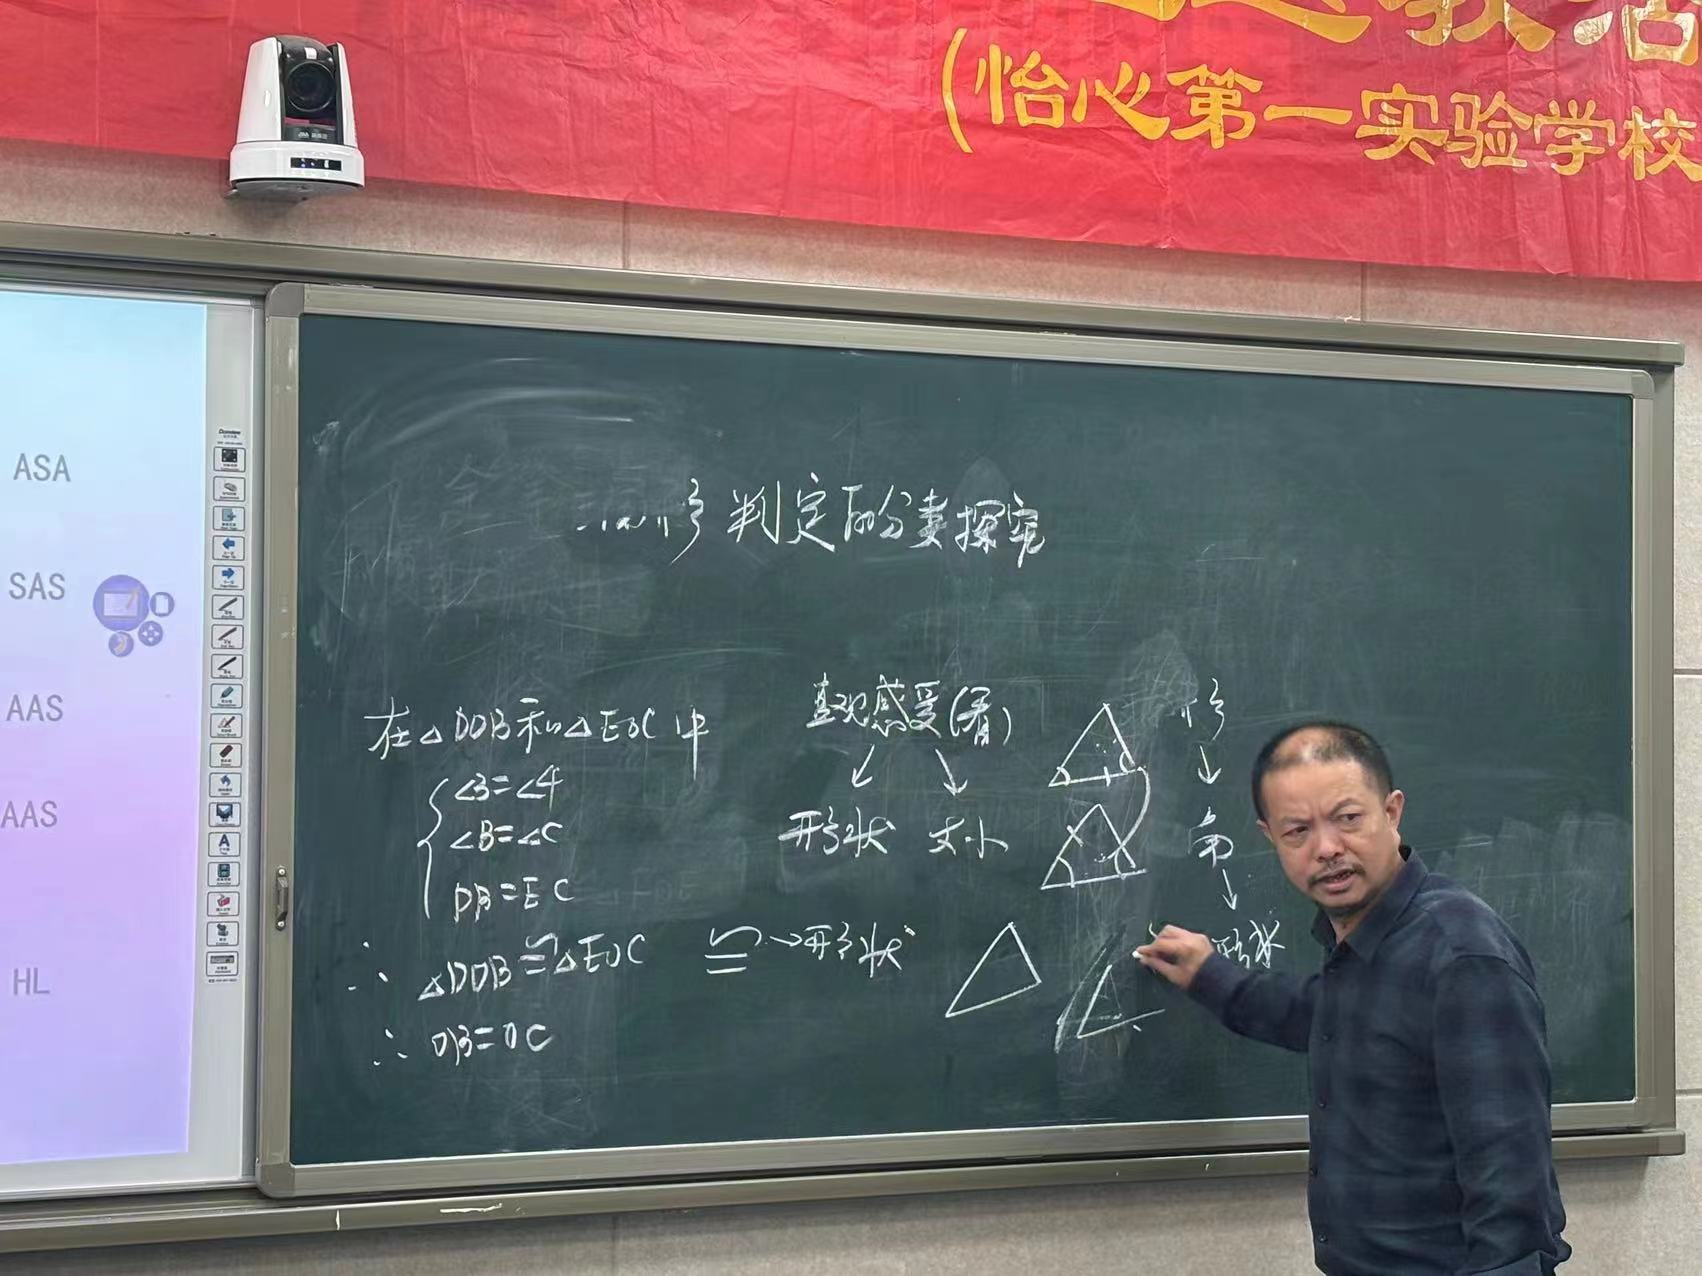 (怡心第一实验学校
ASA
SAS
AAS
AAS
HL
判定的分类探究
在△DOB和△EOC中
∠3=∠4
∠B=∠C
DB=EC
∴ △DOB≌△EOC
∴ OB=OC
直观感受(看)
↙ ↘
形状 大小
≌→形状
形
↓
角
↓
形状